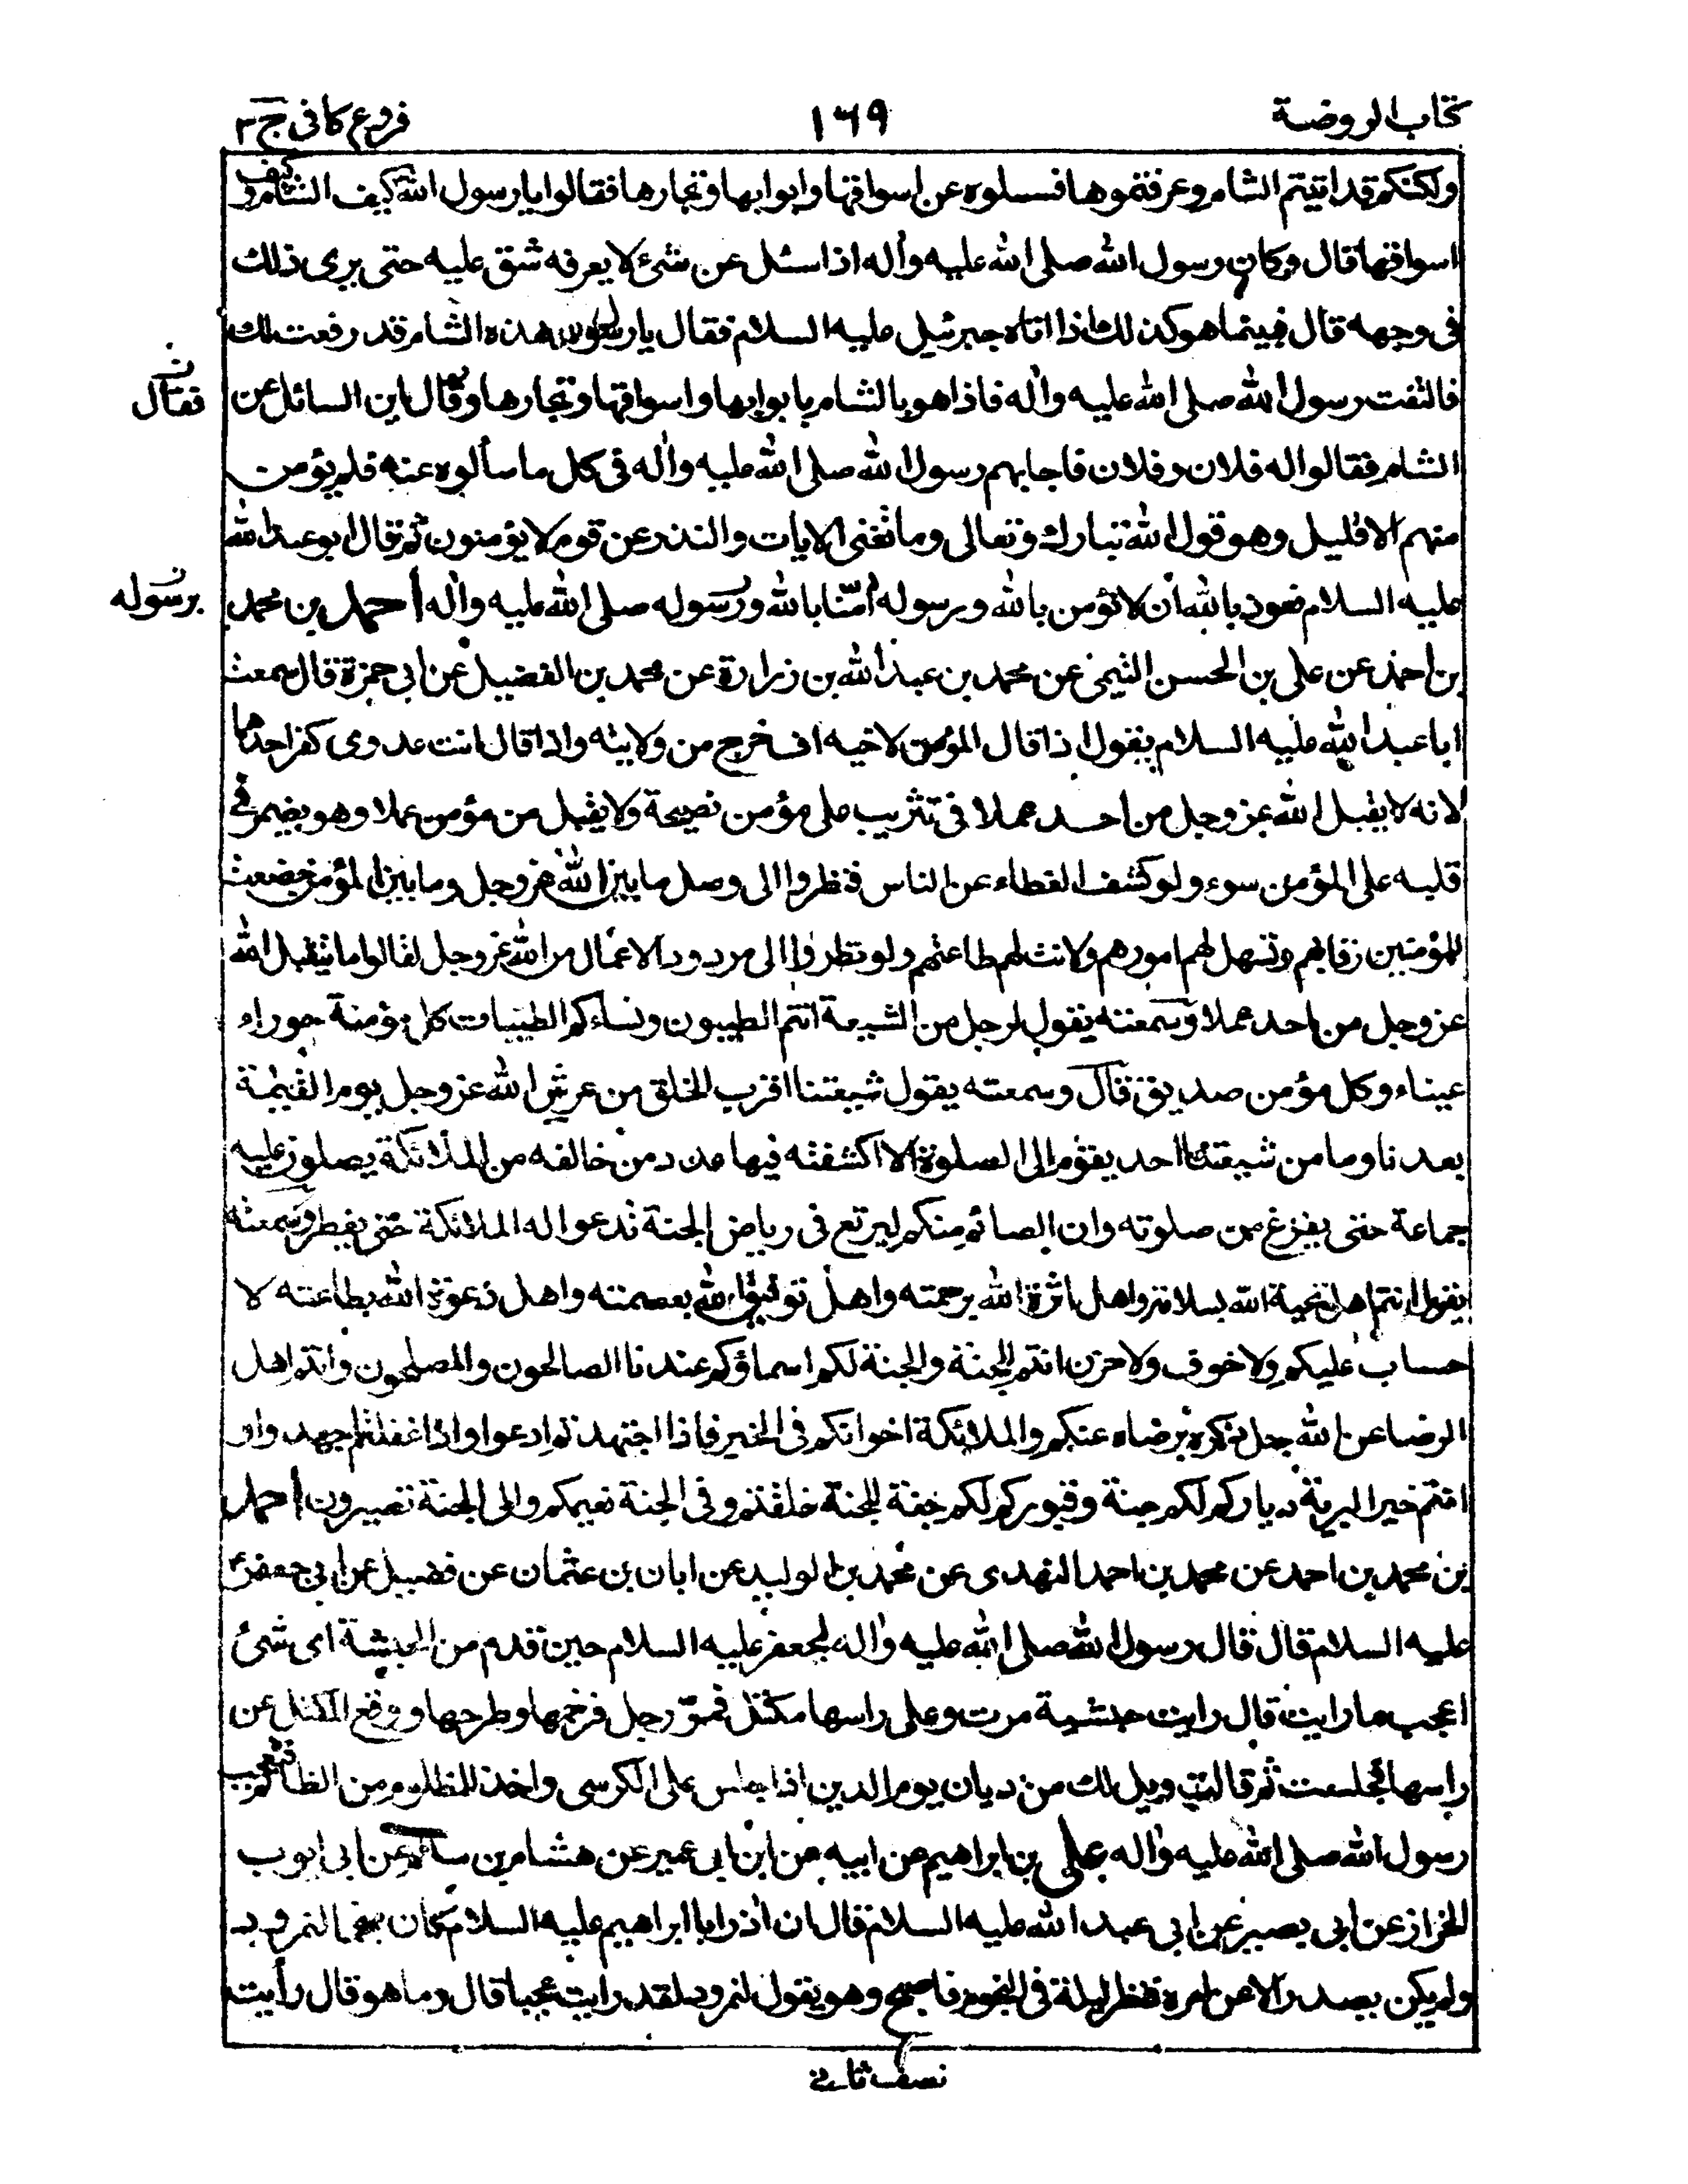 كتاب الروضة
١٦٩
فروع كافى ج ٣
ولكنكم قد اتيتم الشام وعرفتموها فسلوه عن اسواقها وابوابها وتجارها فقالوا يا رسول الله كيف الشام وكيف
اسواقها قال وكان رسول الله صلى الله عليه وآله اذا سئل عن شئ لا يعرفه شق عليه حتى يرى ذلك
فى وجهه قال فبينما هو كذلك اذا اتاه جبرئيل عليه السلام فقال يا رسول الله هذه الشام قد رفعت لك
فالتفت رسول الله صلى الله عليه وآله فاذا هو بالشام بابوابها واسواقها وتجارها وقال اين السائل عن
فقال
الشام فقالوا له فلان وفلان فاجابهم رسول الله صلى الله عليه وآله فى كل ما سألوه عنه فلم يؤمن
منهم الا قليل وهو قول الله تبارك وتعالى وما تغنى الايات والنذر عن قوم لا يؤمنون ثم قال ابو عبد الله
عليه السلام نعوذ بالله أن لا نؤمن بالله ورسوله أمنّا بالله وبرسوله صلى الله عليه وآله أحمد بن محمد
برسوله
بن احمد عن على بن الحسن التيمى عن محمد بن عبد الله بن زرارة عن محمد بن الفضيل عن ابى حمزة قال سمعت
ابا عبد الله عليه السلام يقول اذا قال المؤمن لاخيه اف خرج من ولايته واذا قال انت عدوى كفر احدهما
لانه لا يقبل الله عز وجل من احد عملا فى تثريب على مؤمن نصيحة ولا يقبل من مؤمن عملا وهو يضمر فى
قلبه على المؤمن سوء ولو كشف الغطاء عن الناس فنظروا الى وصل ما بين الله عز وجل وما بين المؤمن خضعت
للمؤمنين رقابهم وتسهل لهم امورهم ولانت لهم طاعتهم ولو نظروا الى مردود الاعمال من الله عز وجل لقالوا ما يتقبل الله
عز وجل من احد عملا وسمعته يقول لرجل من الشيعة انتم الطيبون ونساءكم الطيبات كل مؤمنة حوراء
عيناء وكل مؤمن صديق قال وسمعته يقول شيعتنا اقرب الخلق من عرش الله عز وجل يوم القيٰمة
بعدنا وما من شيعتنا احد يقوم الى الصلوة الا اكتنفته فيها عدد من خالفه من الملائكة يصلون عليه
جماعة حتى يفرغ من صلوته وان الصائم منكم ليرتع فى رياض الجنة تدعو له الملائكة حتى يفطر وسمعته
يقول انتم اهل تحية الله بسلامه واهل اثرة الله برحمته واهل توفيق الله بعصمته واهل دعوة الله بطاعته لا
حساب عليكم ولا خوف ولا حزن انتم للجنة والجنة لكم اسماؤكم عندنا الصالحون والمصلحون وانتم اهل
الرضا عن الله جل ذكره برضاه عنكم والملائكة اخوانكم فى الخير فاذا اجتهدتم ادعوا واذا غفلتم اجهدوا و
انتم خير البرية دياركم لكم جنة وقبوركم لكم جنة للجنة خلقتم وفى الجنة نعيمكم والى الجنة تصيرون أحمد
بن محمد بن احمد عن محمد بن احمد النهدى عن محمد بن الوليد عن ابان بن عثمان عن فضيل عن ابى جعفر
عليه السلام قال قال رسول الله صلى الله عليه وآله لجعفر عليه السلام حين قدم من الحبشة اى شئ
اعجب ما رايت قال رايت حبشية مرت وعلى راسها مكتل فمرّ رجل فزحمها وطرحها ووقع المكتل عن
راسها فجلست ثم قالت ويل لك من ديان يوم الدين اذا جلس على الكرسى واخذ للمظلوم من الظالم فتعجب
رسول الله صلى الله عليه وآله على بن ابراهيم عن ابيه عن ابن ابى عمير عن هشام بن سالم عن ابى ايوب
الخزاز عن ابى بصير عن ابى عبد الله عليه السلام قال ان آذر ابا ابراهيم عليه السلام كان منجما لنمرود
ولم يكن يصدر الا عن امره فنظر ليلة فى النجوم فاصبح وهو يقول لنمرود لقد رايت عجبا قال وما هو قال رأيت
نصف ثانى